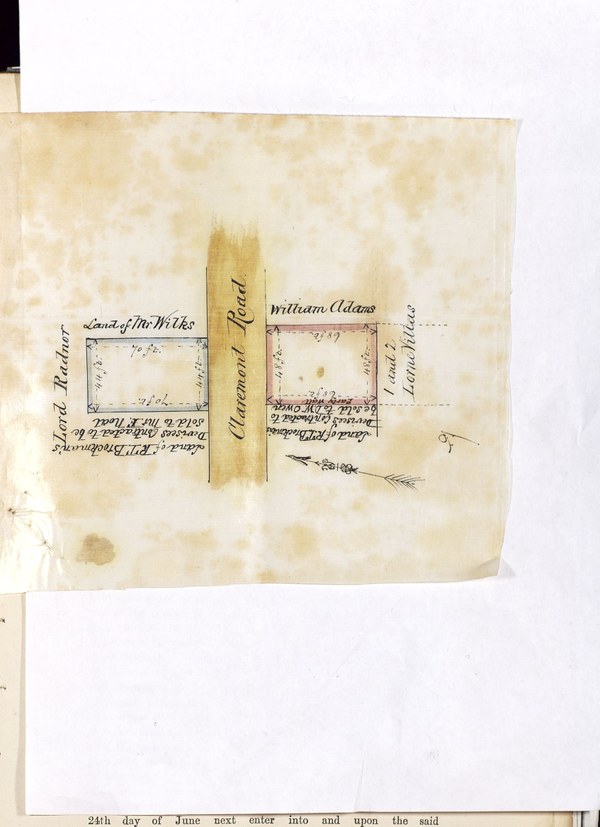 Lord Radnor
Land of Mr Wilks
70 ft.
44 ft.
44 ft.
70 ft.
Land of R.T. Brockman's
Devisees Contracted to be
sold to Mr
Claremont Road.
William Adams
68 ft.
48 ft.
48 ft.
68 ft.
party wall
Land of R.T. Brockman
Devisees Contracted to
be sold to D.W. Owen
1 and 2
Lorne Villas
24th day of June next enter into and upon the said